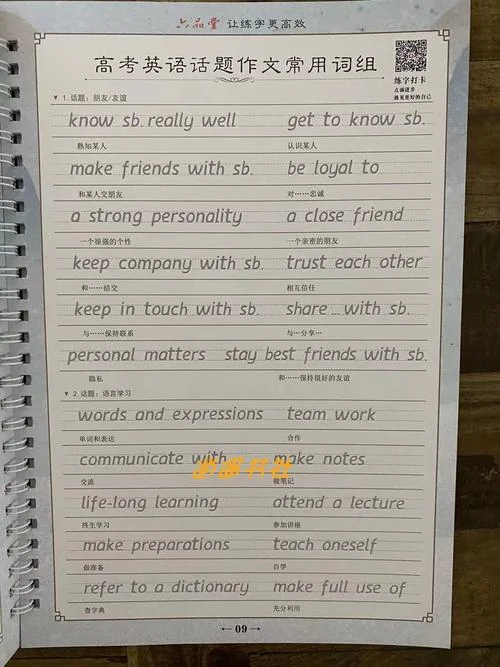 六品堂 让练字更高效
高考英语话题作文常用词组
练字打卡
点滴进步
遇见更好的自己
▼ 1.话题：朋友/友谊
know sb. really well get to know sb.
熟知某人 认识某人
make friends with sb. be loyal to
和某人交朋友 对……忠诚
a strong personality a close friend
一个很强的个性 一个亲密的朋友
keep company with sb. trust each other
和……结交 相互信任
keep in touch with sb. share ... with sb.
与……保持联系 与…分享…
personal matters stay best friends with sb.
隐私 和……保持很好的友谊
▼ 2.话题：语言学习
words and expressions team work
单词和表达 合作
communicate with make notes
交流 做笔记
life-long learning attend a lecture
终生学习 参加讲座
make preparations teach oneself
做准备 自学
refer to a dictionary make full use of
查字典 充分利用
09